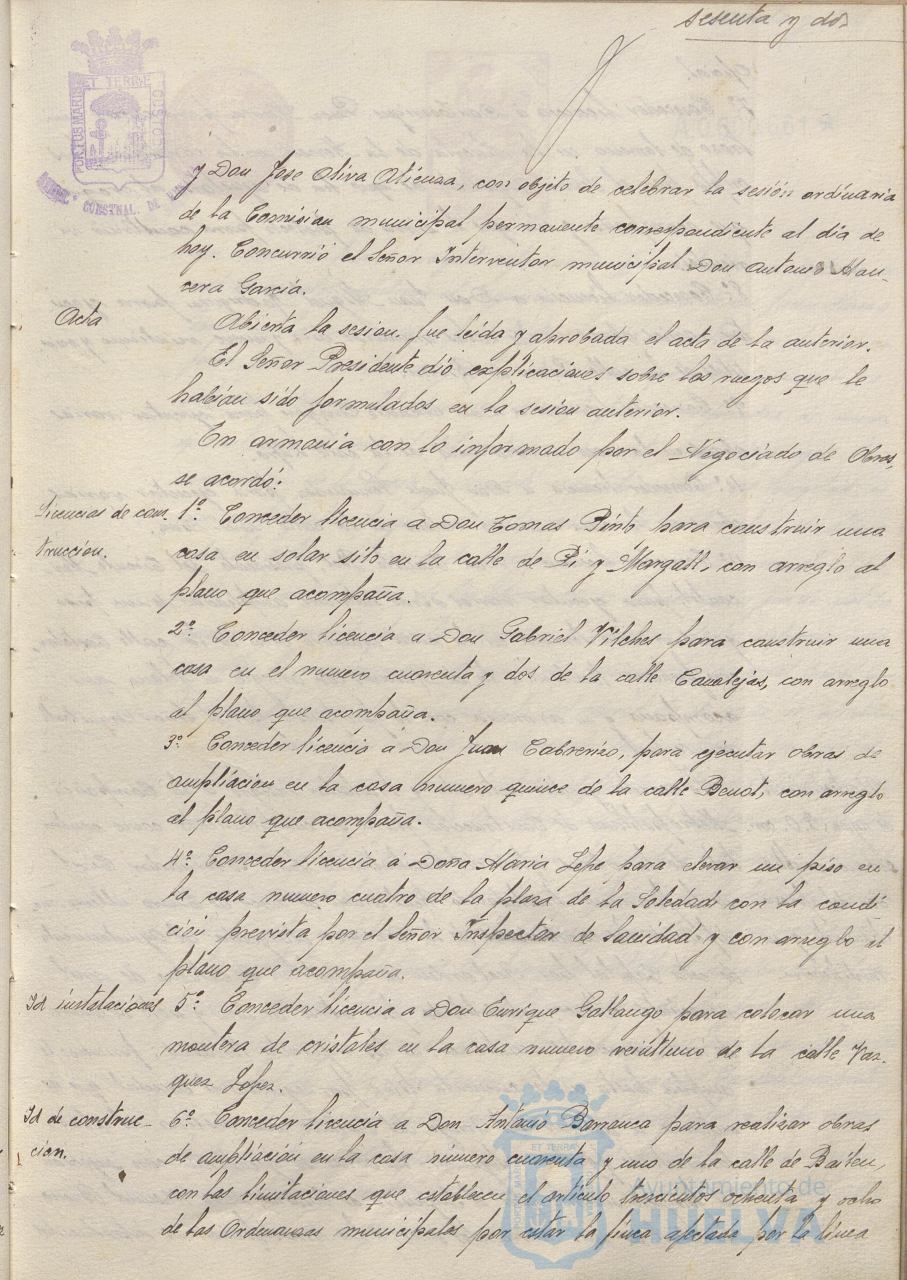 sesenta y dos
PORTUS MARIS ET TERRAE CUSTODIA
y Don Jose Oliva Atienza, con objeto de celebrar la sesión ordinaria
de la Comision municipal permanente correspondiente al dia de
hoy. Concurrió el Señor Interventor municipal Don Antonio Man-
cera García.
Acta
Abierta la sesion. fue leida y aprobada el acta de la anterior.
El Señor Presidente dió explicaciones sobre los ruegos que le
habian sido formulados en la sesion anterior.
En armonia con lo informado por el Negociado de Obras,
se acordó:
Licencias de cons-
trucción.
1º. Conceder licencia a Don Tomas Pinto para construir una
casa en solar sito en la calle de Pi y Margall, con arreglo al
plano que acompaña.
2º. Conceder licencia a Don Gabriel Vilches para construir una
casa en el numero cuarenta y dos de la calle Canalejas, con arreglo
al plano que acompaña.
3º. Conceder licencia á Don Juan Cabrerizo, para ejecutar obras de
ampliacion en la casa numero quince de la calle Benot, con arreglo
al plano que acompaña.
4º. Conceder licencia á Doña Maria Lepe para elevar un piso en
la casa numero cuatro de la plaza de la Soledad con la condi-
ción prevista por el Señor Inspector de Sanidad y con arreglo al
plano que acompaña.
Id instalaciones
5º. Conceder licencia a Don Enrique Gallango para colocar una
montera de cristales en la casa numero veintiuno de la calle Vaz-
quez Lopez.
Id de construc-
cion.
6º. Conceder licencia a Don Antonio Barranca para realizar obras
de ampliación en la casa numero cuarenta y uno de la calle de Bailen,
con las limitaciones que establecen el artículo trescientos ochenta y ocho
de las Ordenanzas municipales por estar la finca afectada por la linea
Ayuntamiento de
HUELVA